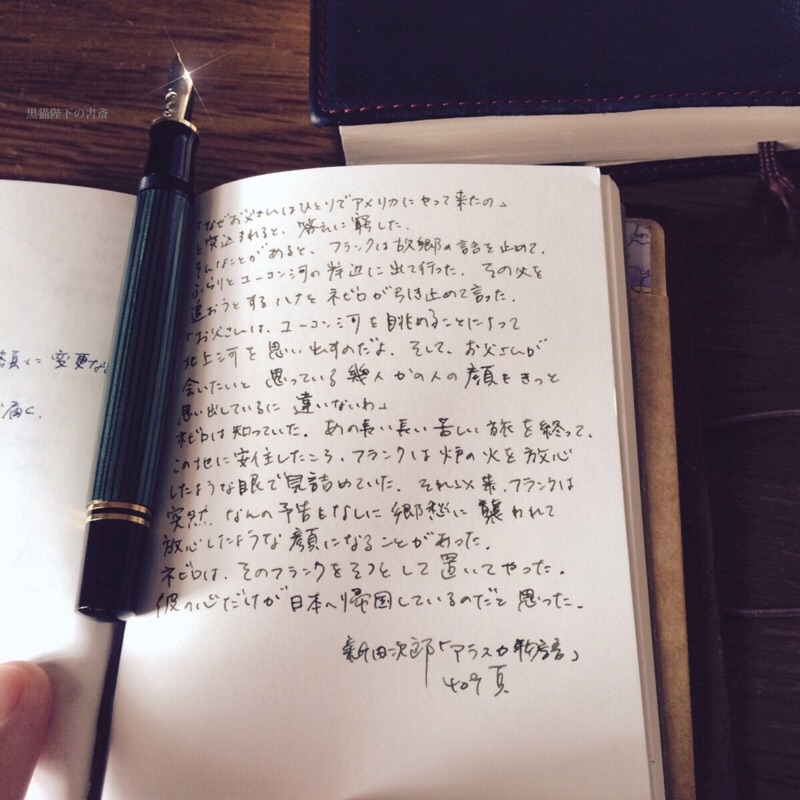 黒猫陛下の書斎
「なぜお父さんはひとりでアメリカにやって来たの」
と突込まれると、答えに窮した。
そんなことがあると、フランクは故郷の話を止めて、
ふらりとユーコン河の岸辺に出て行った。その父を
追おうとするハナをネビロが引き止めて言った。
「お父さんは、ユーコン河を眺めることによって
北上河を思い出すのだよ。そして、お父さんが
会いたいと思っている幾人かの人の顔をきっと
思い出しているに違いないわ」
ネビロは知っていた。あの長い長い苦しい旅を終って、
この地に安住したころ、フランクは炉の火を放心
したような眼で見詰めていた。それ以来、フランクは
突然、なんの予告もなしに郷愁に襲われて
放心したような顔になることがあった。
ネビロは、そのフランクをそっとして置いてやった。
彼の心だけが日本へ帰国しているのだと思った。
新田次郎「アラスカ物語」
頁
に変更な
届く。